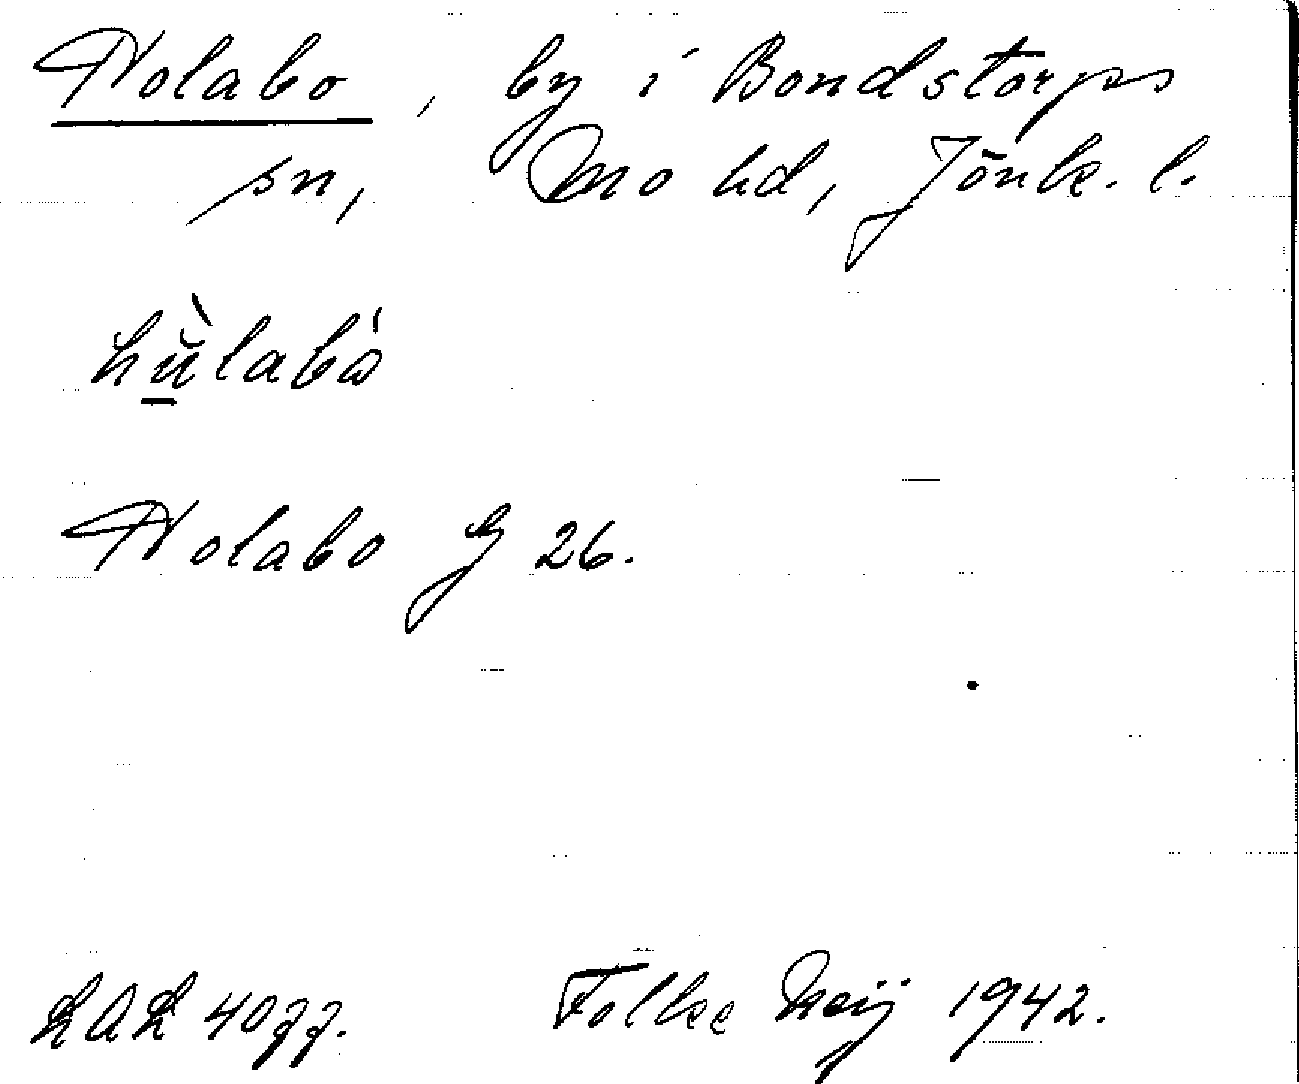 Holabo, by i Bondstorps
sn, Mo hd, Jönk. l.
Holabo G 26.
4077. Folke 1942.